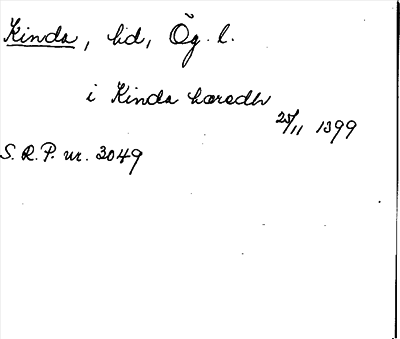 Kinda, hd, Ög. l.
i Kinda hæredh
25/11 1399
S. R. P. nr. 3049